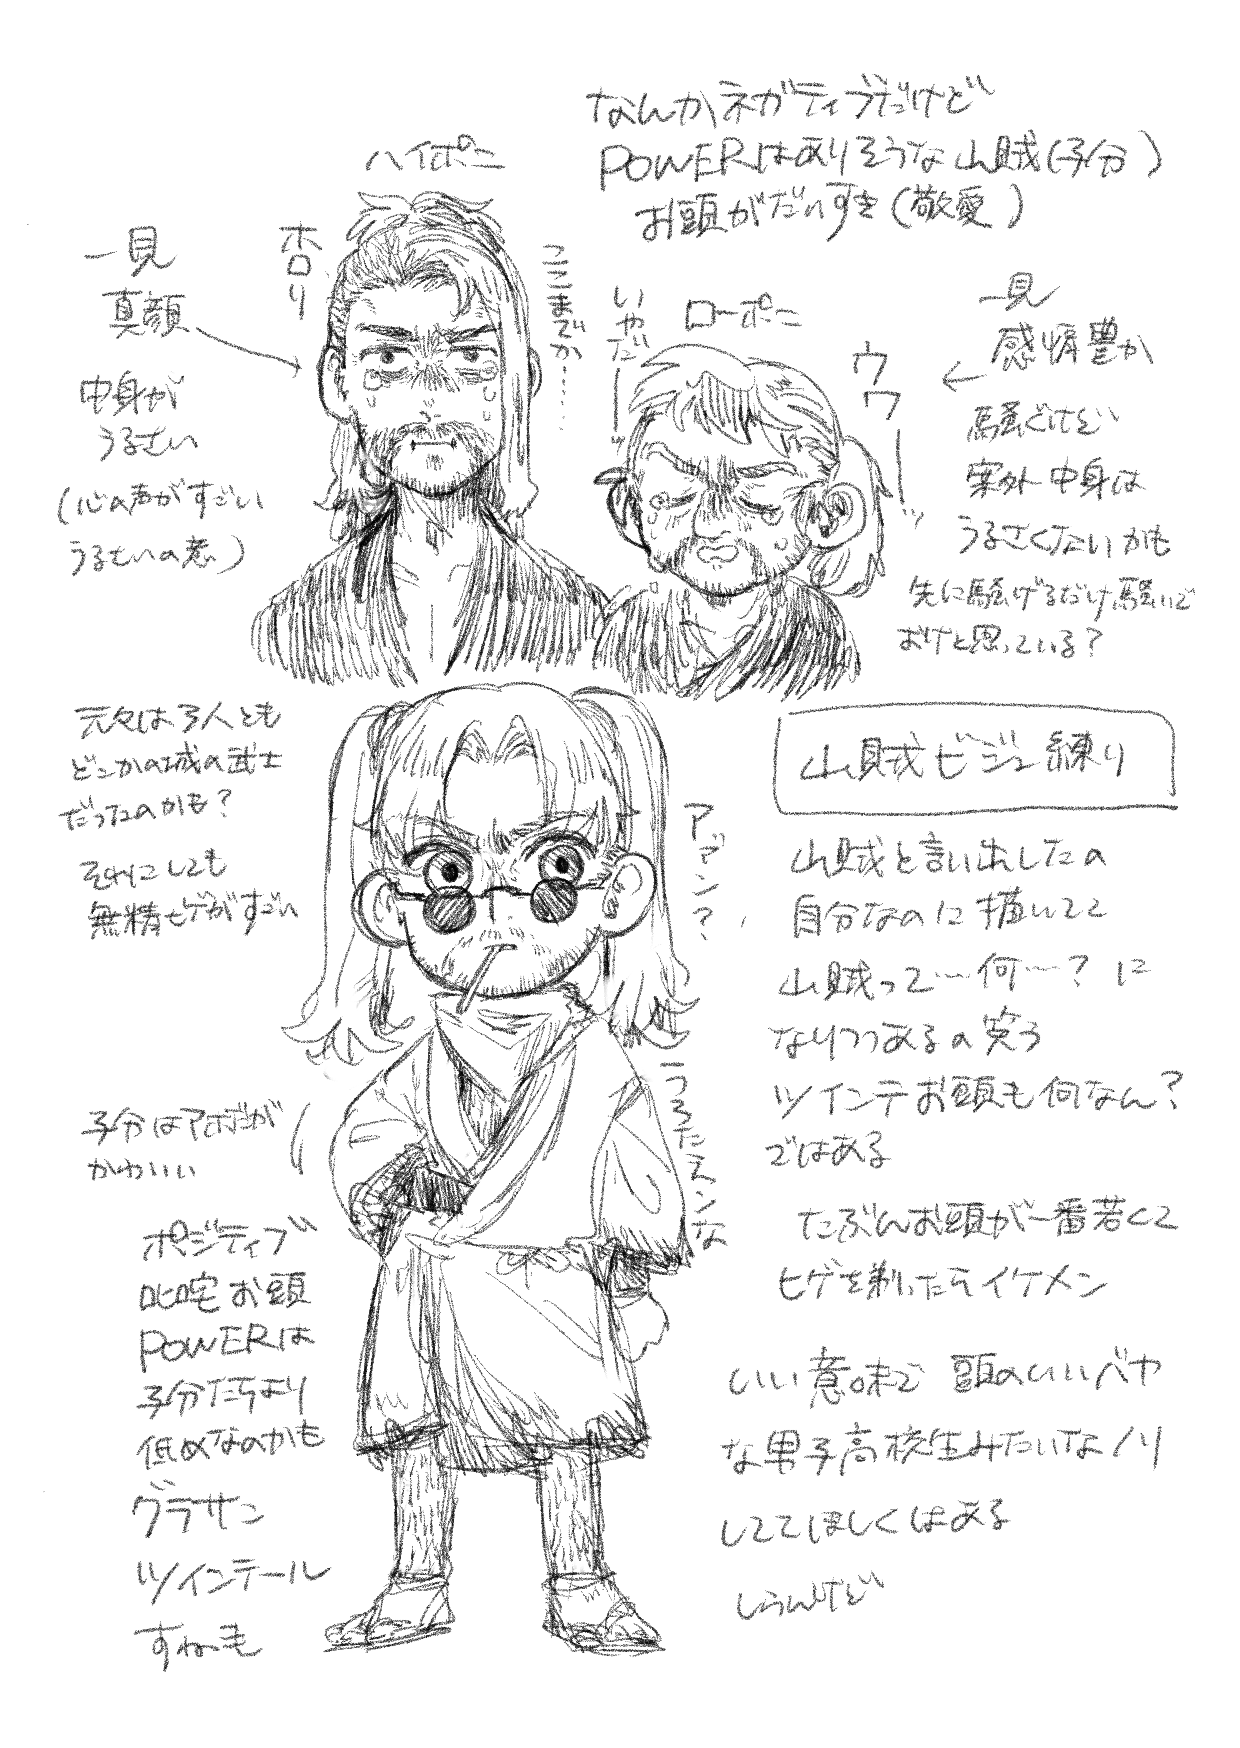 なんかネガティブだけど
POWERはありそうな山賊(子分)
お頭がだいすき(敬愛)
ハイポニ
ホロリ
ここまでか……
一見
真顔
中身が
うるさい
(心の声がすごい
うるさいの意)
いやだーッ
ローポニ
ウワーッ
一見
感情豊か
騒ぐけどい
案外中身は
うるさくないかも
先に騒げるだけ騒いで
おけと思っている?
元々は3人とも
どこかの城の武士
だったのかも?
それにしても
無精ヒゲがすごい
アァン?
うろたえンな
子分はアホだが
かわいい
ポジティブ
叱咤お頭
POWERは
子分たちより
低めなのかも
グラサン
ツインテール
すね毛
山賊ビジュ練り
山賊と言い出したの
自分なのに描いてて
山賊って…何…?に
なりつつあるの笑う
ツインテお頭も何なん?
ではある
たぶんお頭が一番若くて
ヒゲを剃いたらイケメン
いい意味で頭のいいバカ
な男子高校生みたいなノリ
しててほしくはある
しらんけど